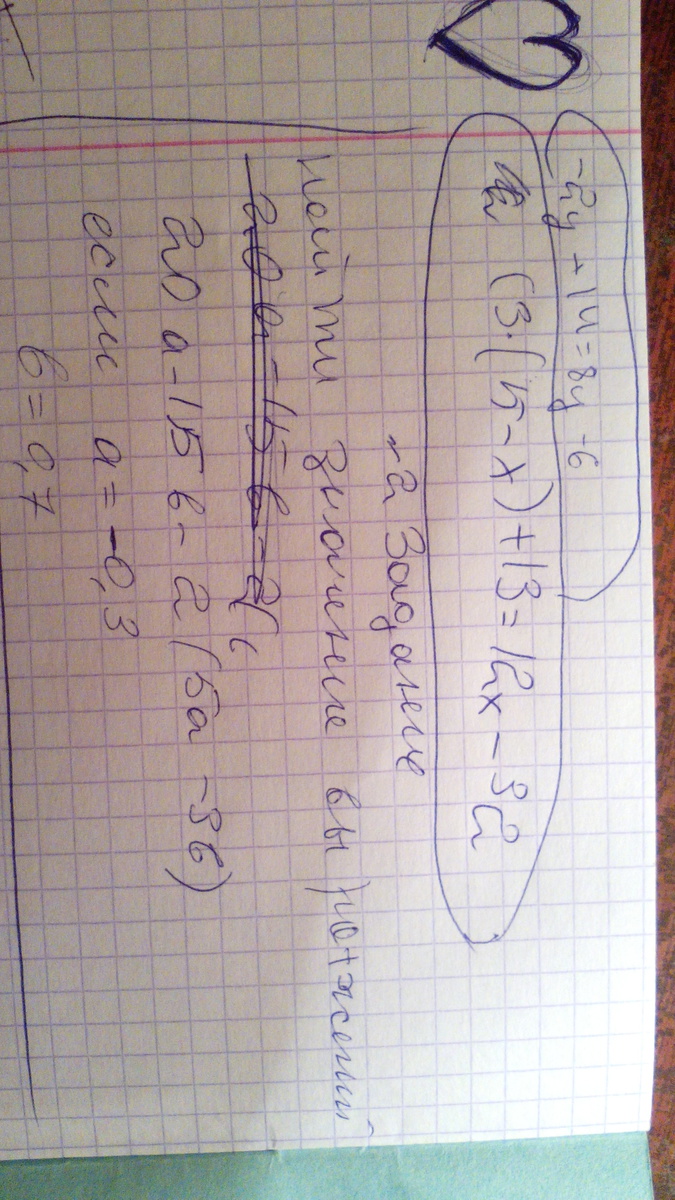 -2y + 14 = 8y - 6
(3·(15-x)+13=12x-32
2 Задание
найти значение выражений
20 а - 15 в - 2(
20 а - 15 в - 2(5а - 3в)
если а = -0,3
в = 0,7